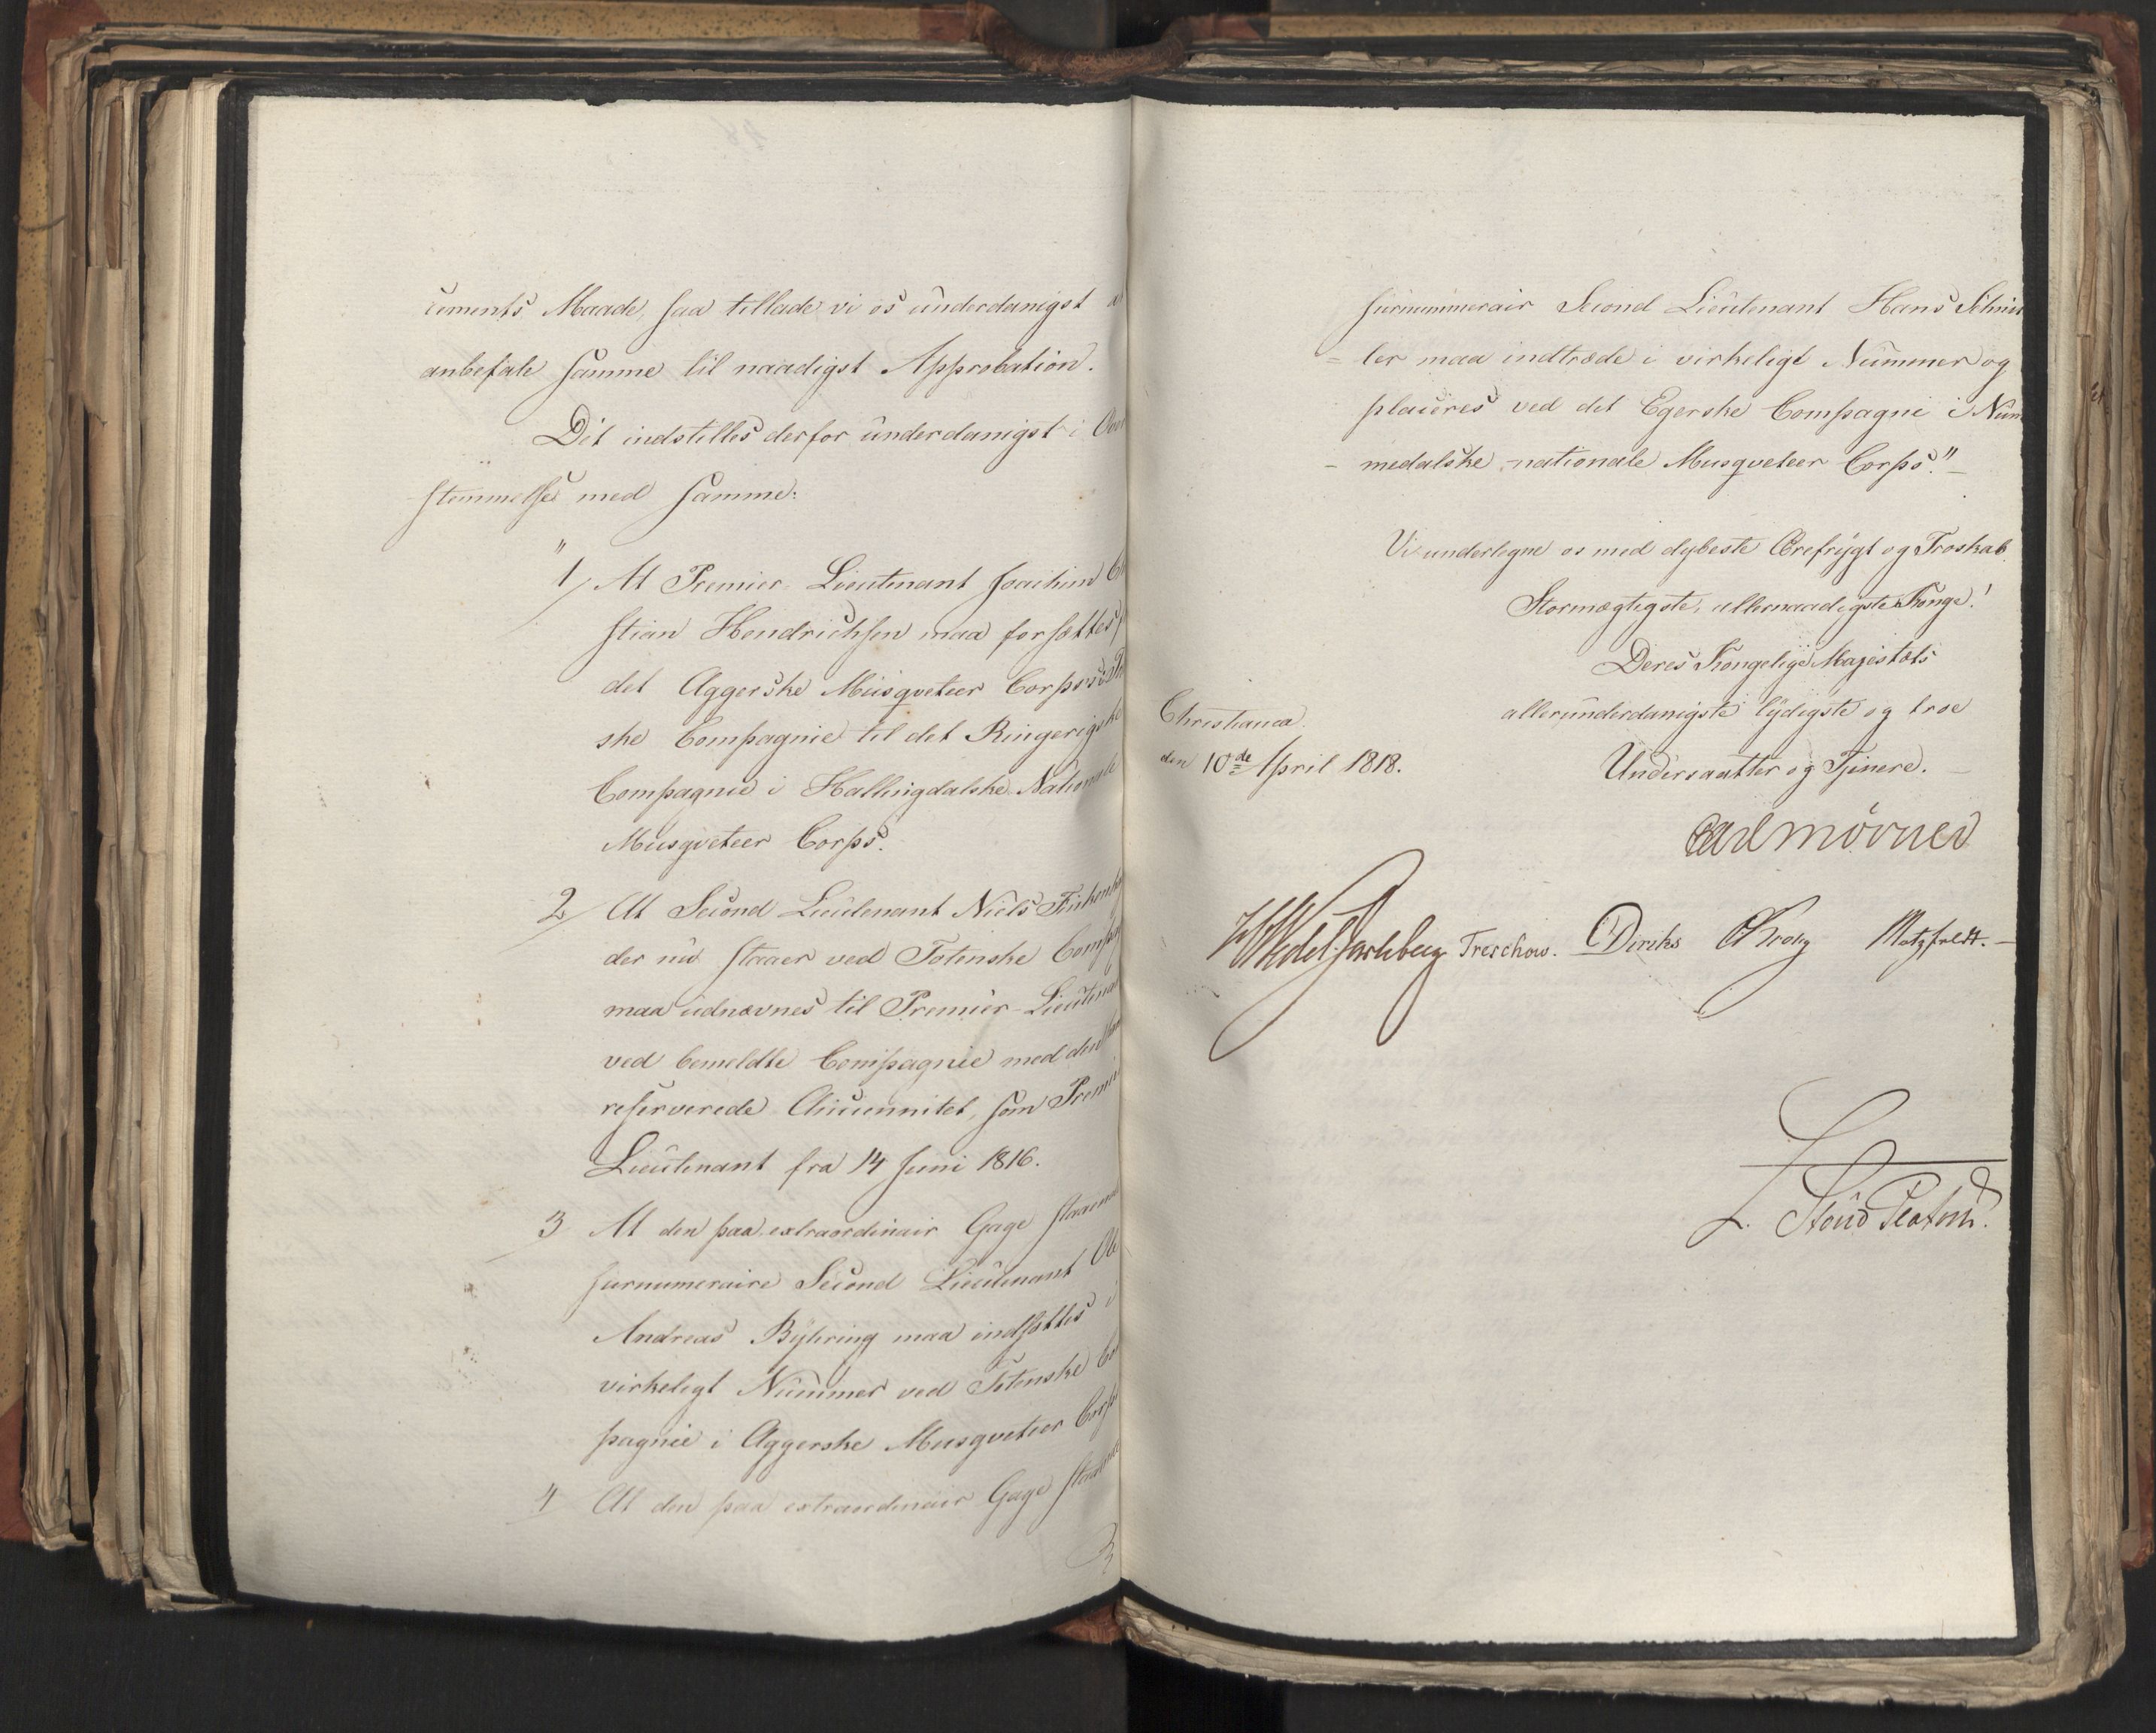 cuments Maade, saa tillade vi os underdanigst
anbefale samme til naadigst Approbation.
Det indstilles derfor underdanigst i
stemmelse med samme:
"1/ At Premier-Lieutenant Joachim
stian Hendrichsen maa forsættes
det Aggerske Musqveteer Corpses
ske Compagnie til det Ringerigske
Compagnie i Hallingdalske Nationale
Musqveteer Corps.
2/ At Second Lieutenant Niels
der nu staaer ved Totenske
maa udnævnes til Premier-Lieutenant
ved bemeldte Compagnie med den
reserverede Anciennitet, som Premier
Lieutenant fra 14 Juni 1816.
3 At den paa extraordinair Gage
surnumeraire Second Lieutenant
Andreas Byhring maa indsættes i
virkeligt Nummer ved Totenske
pagnie i Aggerske Musqveteer Corps
4 At den paa extraordinair Gage
surnummerair Second Lieutenant Hans
= ler maa indtræde i virkeligt Nummer og
placeres ved det Egerske Compagnie i Num
- medalske nationale Musqveteer Corps."
Vi underlegne os med dybeste Ærefrygt og Troskab
Stormægtigste, allernaadigste Konge!
Deres Kongelige Majestæts
allerunderdanigste lydigste og troe
Undersaatter og Tjenere.
Christiania
den 10de April 1818.
Carl Mörner
HWedel Jarlsberg Treschow. Diriks Krog Motzfeldt.
L. Stoud Platou.